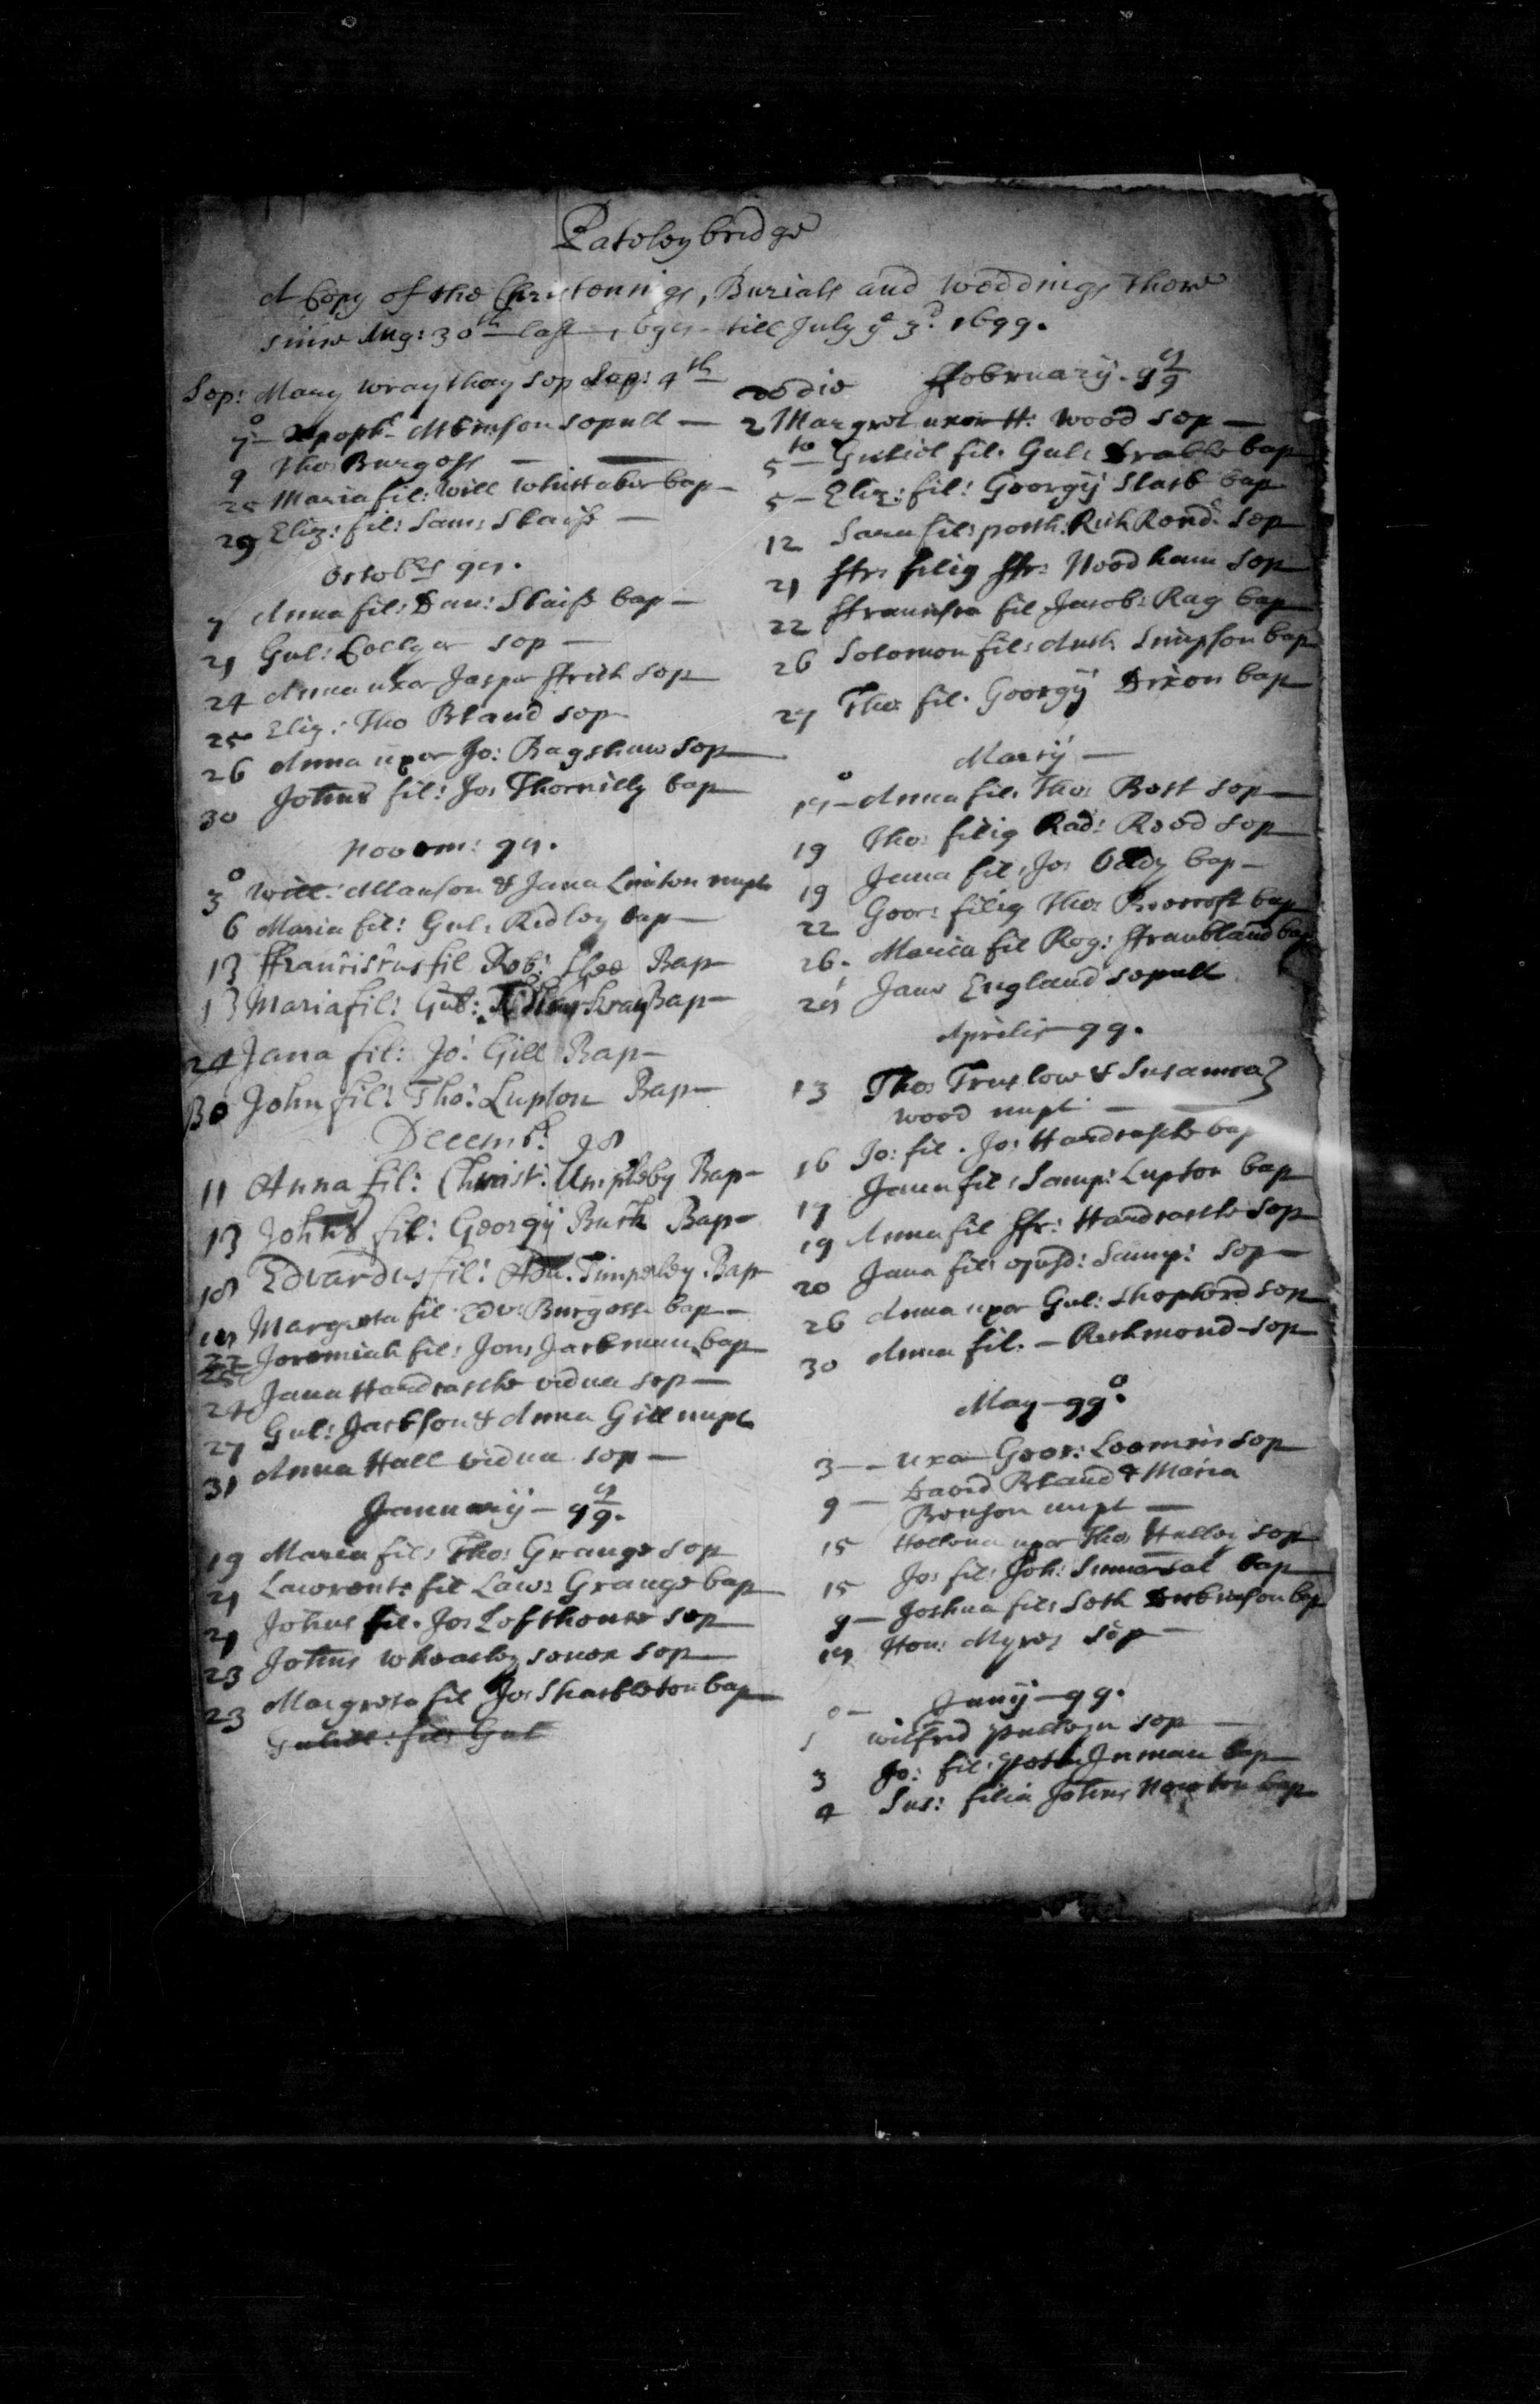 Pateley bridge
A Copy of the Christenings, Burials and Weddings there
since Aug: 30th last 1698 till July ye 3d. 1699.
Sep: Mary Wraythay sep Sep: 4th
7o Xpoph: Atkinson sepult
9 Tho Burgess
25 Maria fil: Will Whittaker bap
29 Eliz: fil: Sam: Skaife
Octobrs 98.
7 Anna fil: Dan: Skaife bap
21 Gul: Collyer sep
24 Anna uxor Jasper ffrith sep
25 Eliz: Tho Bland sep
26 Anna uxor Jo: Bagshaw sep
30 Johns fil: Jo: Thornilly bap
Novem: 98.
3o Will: Manson & Jana Linton nupt
6 Maria fil: Gul: Ridley bap
13 ffranciscus fil Rob: Bap
13 Maria fil: Gul: Bap
24 Jana fil: Jo: Gill Bap
30 John fil: Tho: Lupton Bap
Decembr 98
11 Anna fil: Christ: Umpleby Bap
13 Johns fil: Georgij Buck Bap
18 Edvardus fil: Timperley Bap
18 Margreta fil Edv: Burgess bap
22 Jeremiah fil: Jon: Jackman bap
24 Jana Hardcastle vidua sep
27 Gul: Jackson & Anna Gill nupt
31 Anna Hall vidua sep
Januarij 98/9.
19 Maria fil: Tho: Grange sep
21 Lawrents fil Law: Grange bap
21 Johns fil. Jo: Lofthouse sep
23 Johns Wheatley senex sep
23 Margreta fil Jo: Shackleton bap
Guliel: fil: Gul
die ffebruarij. 98/9
2 Margret uxor H: Wood sep
5to Guliel fil. Gul: Drable bap
5 Eliz: fil: Georgij Slack bap
12 Sara fil: posth: Rich Rond: sep
21 ffr: filiq ffr: Woodham sep
22 ffrancisca fil Jacob: Rag bap
26 Solomon fil: Anth Simpson bap
27 Tho: fil. Georgij Dixon bap
Martij
Anna fil. Tho: Best sep
19 Tho: filiq Rad: Reed sep
19 Jana fil: Jo: Oddy bap
22 Geor: filiq Tho: Beecroft bap
26. Maria fil Rog: ffrankland bap
28 Jane England sepult
Aprilis 99.
13 Tho: Truslow & Susanna}
Wood nupt
16 Jo: fil. Jo: Hardcastle bap
17 Jana fil: Samp: Lupton bap
19 Anna fil ffr: Hardcastle sep
20 Jana fil: ejusd: Samp: sep
26 Anna uxor Gul: Shepherd sep
30 Anna fil. Richmond sep
May 99o.
3 uxor Geor: Loomis sep
9 David Bland & Maria
Benson nupt
15 Hellena uxor Tho: Halley sep
15 Jo: fil: Joh: bap
9 Joshua fil: Seth Dickinson bap
18 Hen: Myres sep
Junij 99.
Wilfrid sep
3 Jo: fil: Inman bap
4 Sus: filia Johns Newton bap